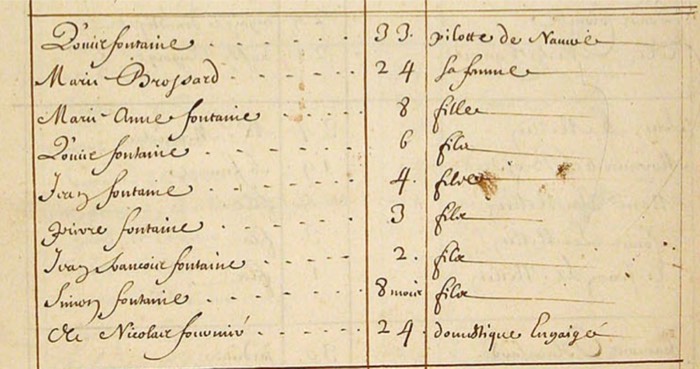 Louis fontaine 33. pilotte de Navire
Marie Brossard 24 sa femme
Marie Anne fontaine 8 fille
Louis fontaine 6 fils
Jean fontaine 4. fils
pierre fontaine 3 fils
Jean francois fontaine 2. fils
Simon fontaine 8 mois fils
Nicolas fournié 24. domestique Engaigé